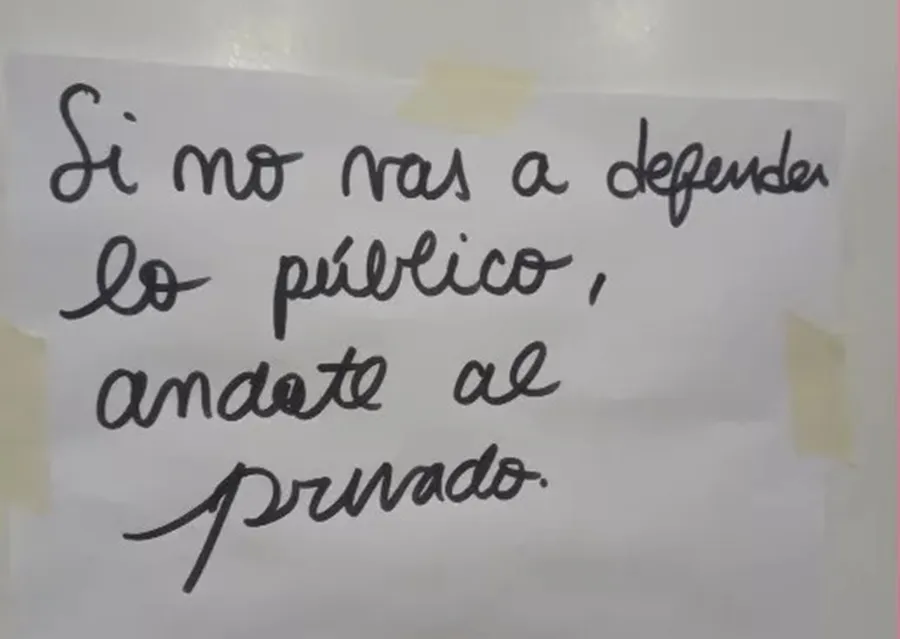 Si no vas a defender
lo público,
andate al
privado.